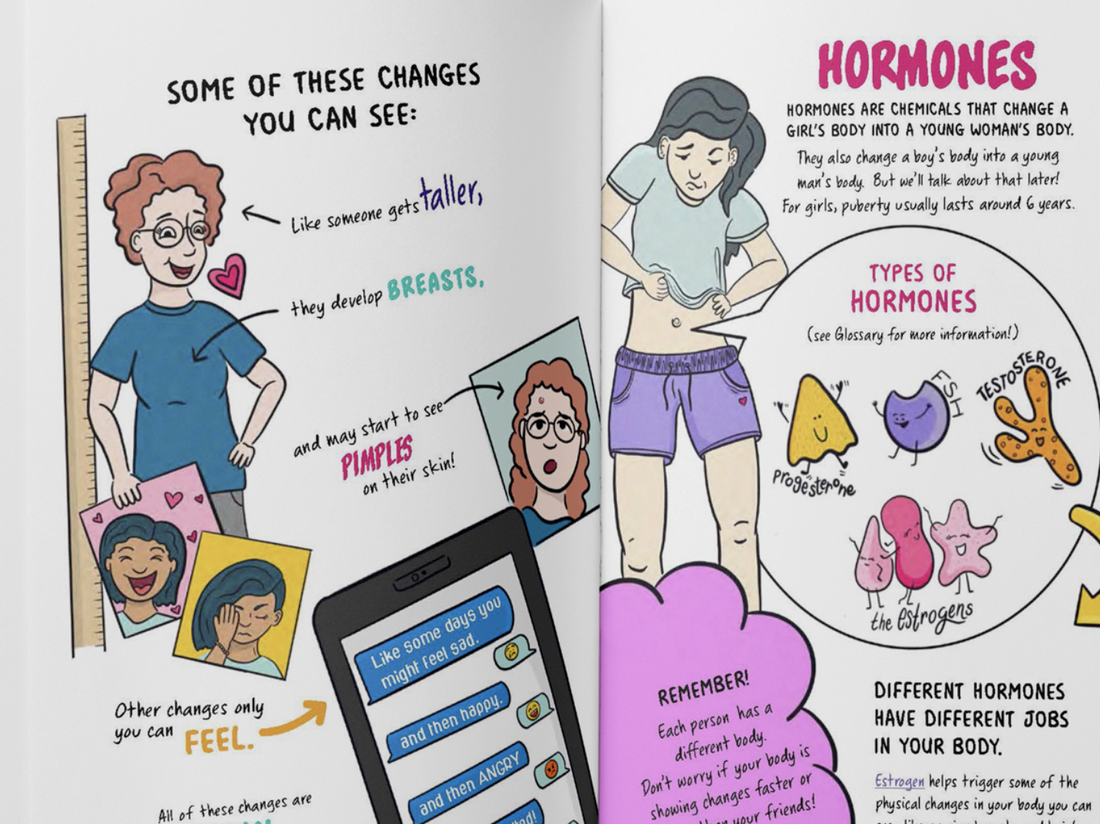 SOME OF THESE CHANGES
YOU CAN SEE:
Like someone gets taller,
they develop BREASTS,
and may start to see
PIMPLES
on their skin!
Like some days you
might feel sad.
and then happy.
and then ANGRY
Other changes only
you can FEEL.
All of these changes are
HORMONES
HORMONES ARE CHEMICALS THAT CHANGE A
GIRL'S BODY INTO A YOUNG WOMAN'S BODY.
They also change a boy's body into a young
man's body. But we'll talk about that later!
For girls, puberty usually lasts around 6 years.
TYPES OF
HORMONES
(see Glossary for more information!)
progesterone
FSH
TESTOSTERONE
the estrogens
REMEMBER!
Each person has a
different body.
Don't worry if your body is
showing changes faster or
your friends!
DIFFERENT HORMONES
HAVE DIFFERENT JOBS
IN YOUR BODY.
Estrogen helps trigger some of the
physical changes in your body you can